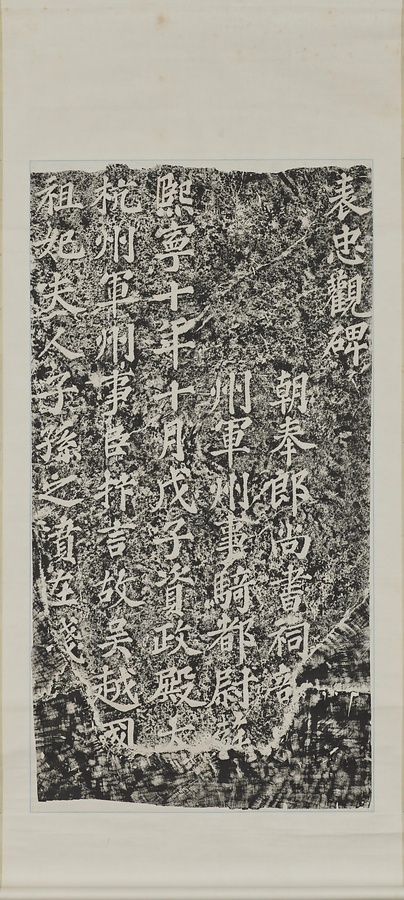 表忠觀碑
朝奉郎尚書祠部
州軍州事騎都尉
熙寧十年十月戊子資政殿大
杭州軍州事臣抃言故吳越國
祖妣夫人子孫之墳在錢